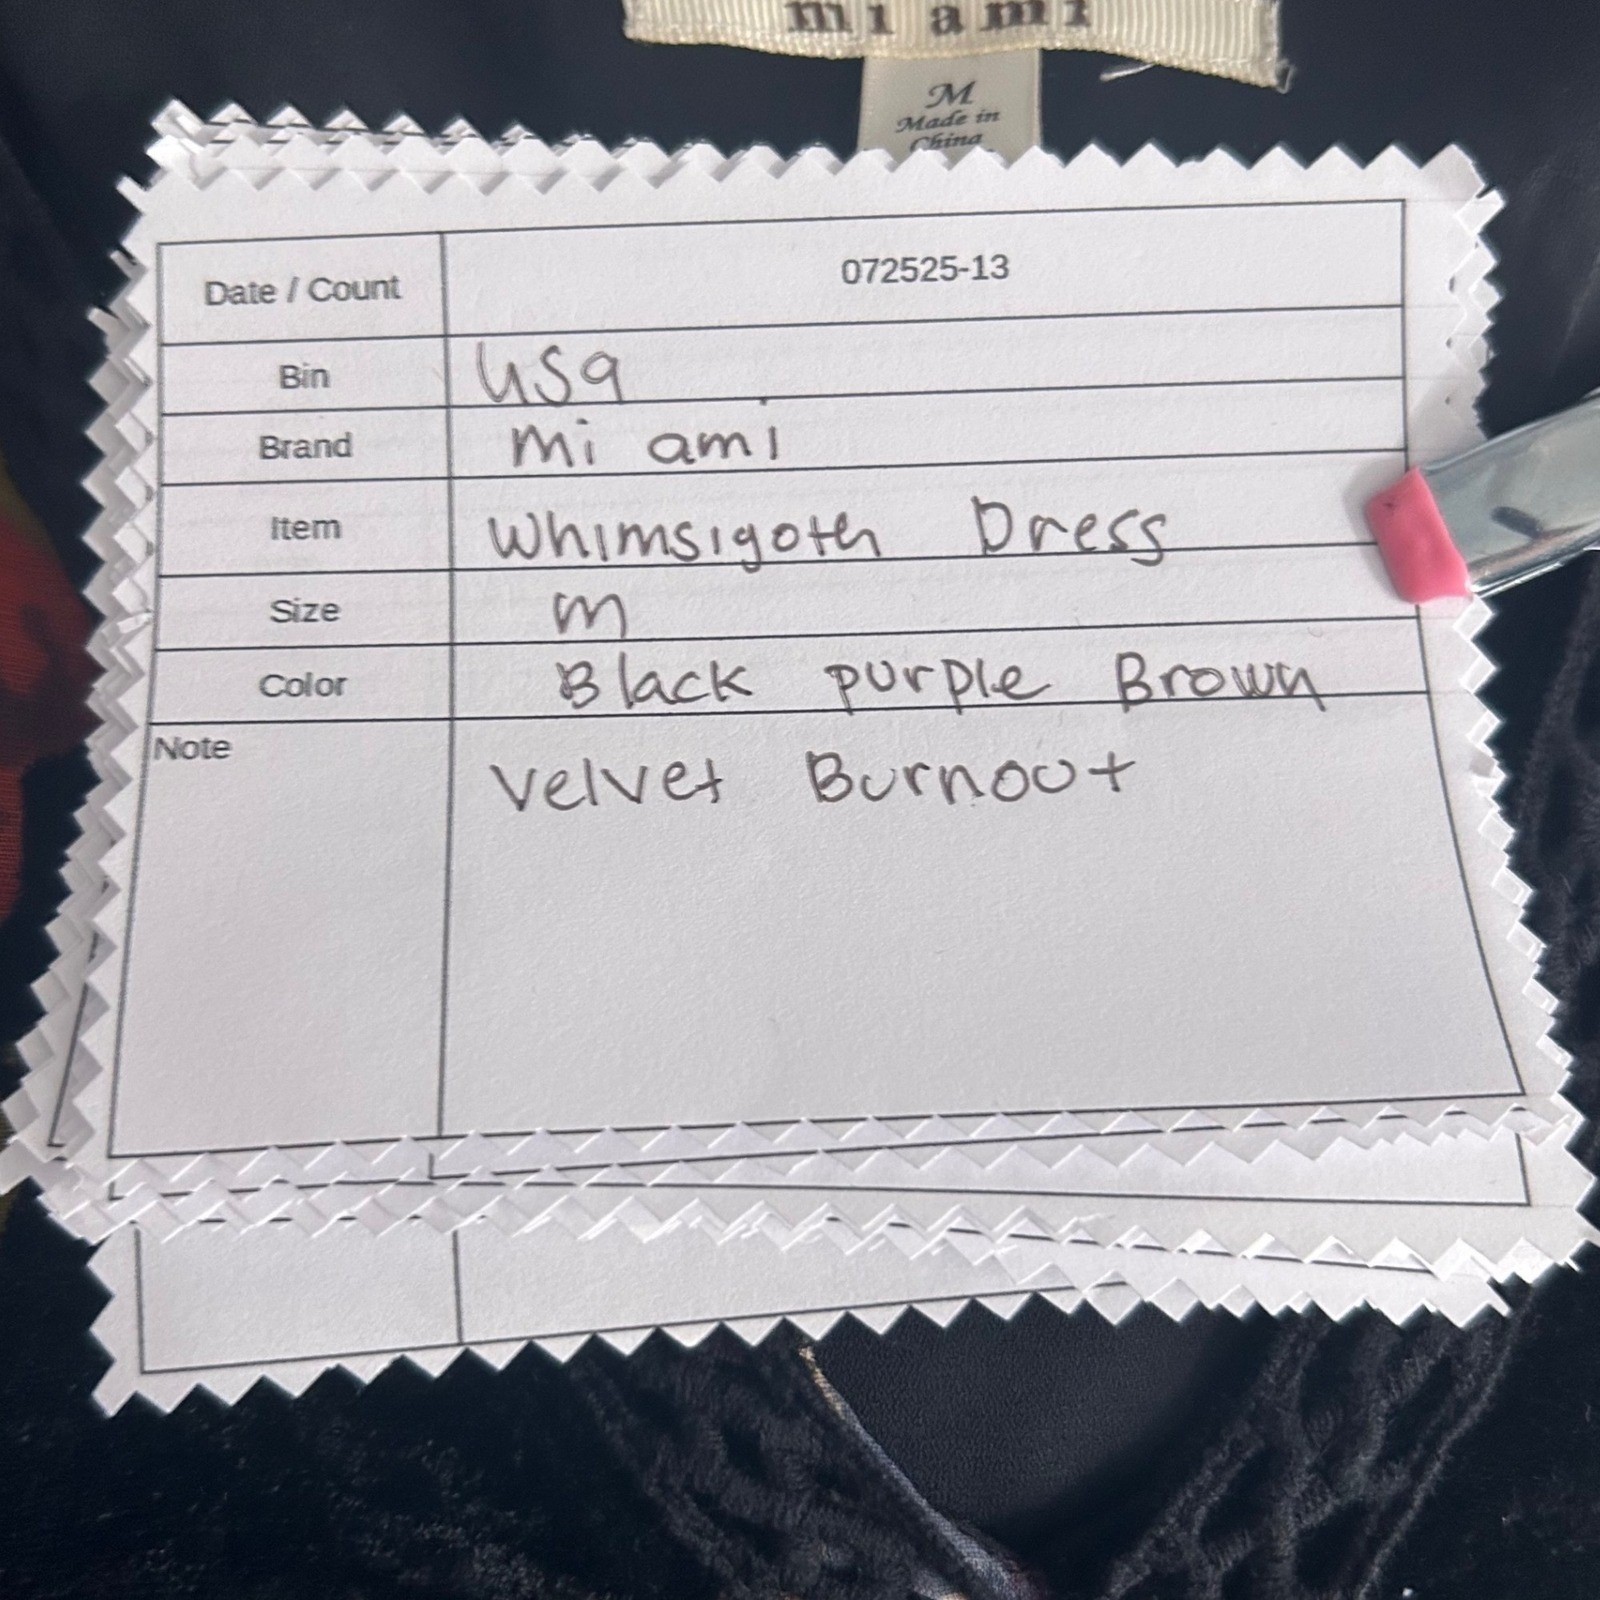 mi ami
M
Made in
China
Date / Count 072525-13
Bin USA
Brand mi ami
Item Whimsigoth Dress
Size m
Color Black purple Brown
Note Velvet Burnout